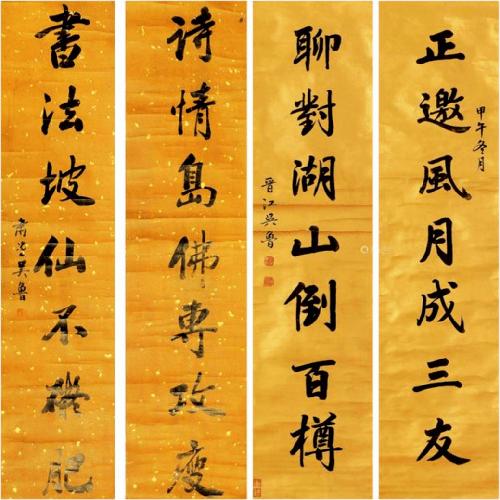 正邀風月成三友
甲午冬月
聊對湖山倒百樽
晉江吳魯
詩情島佛專攻瘦
書法坡仙不礙肥
肅堂吳魯